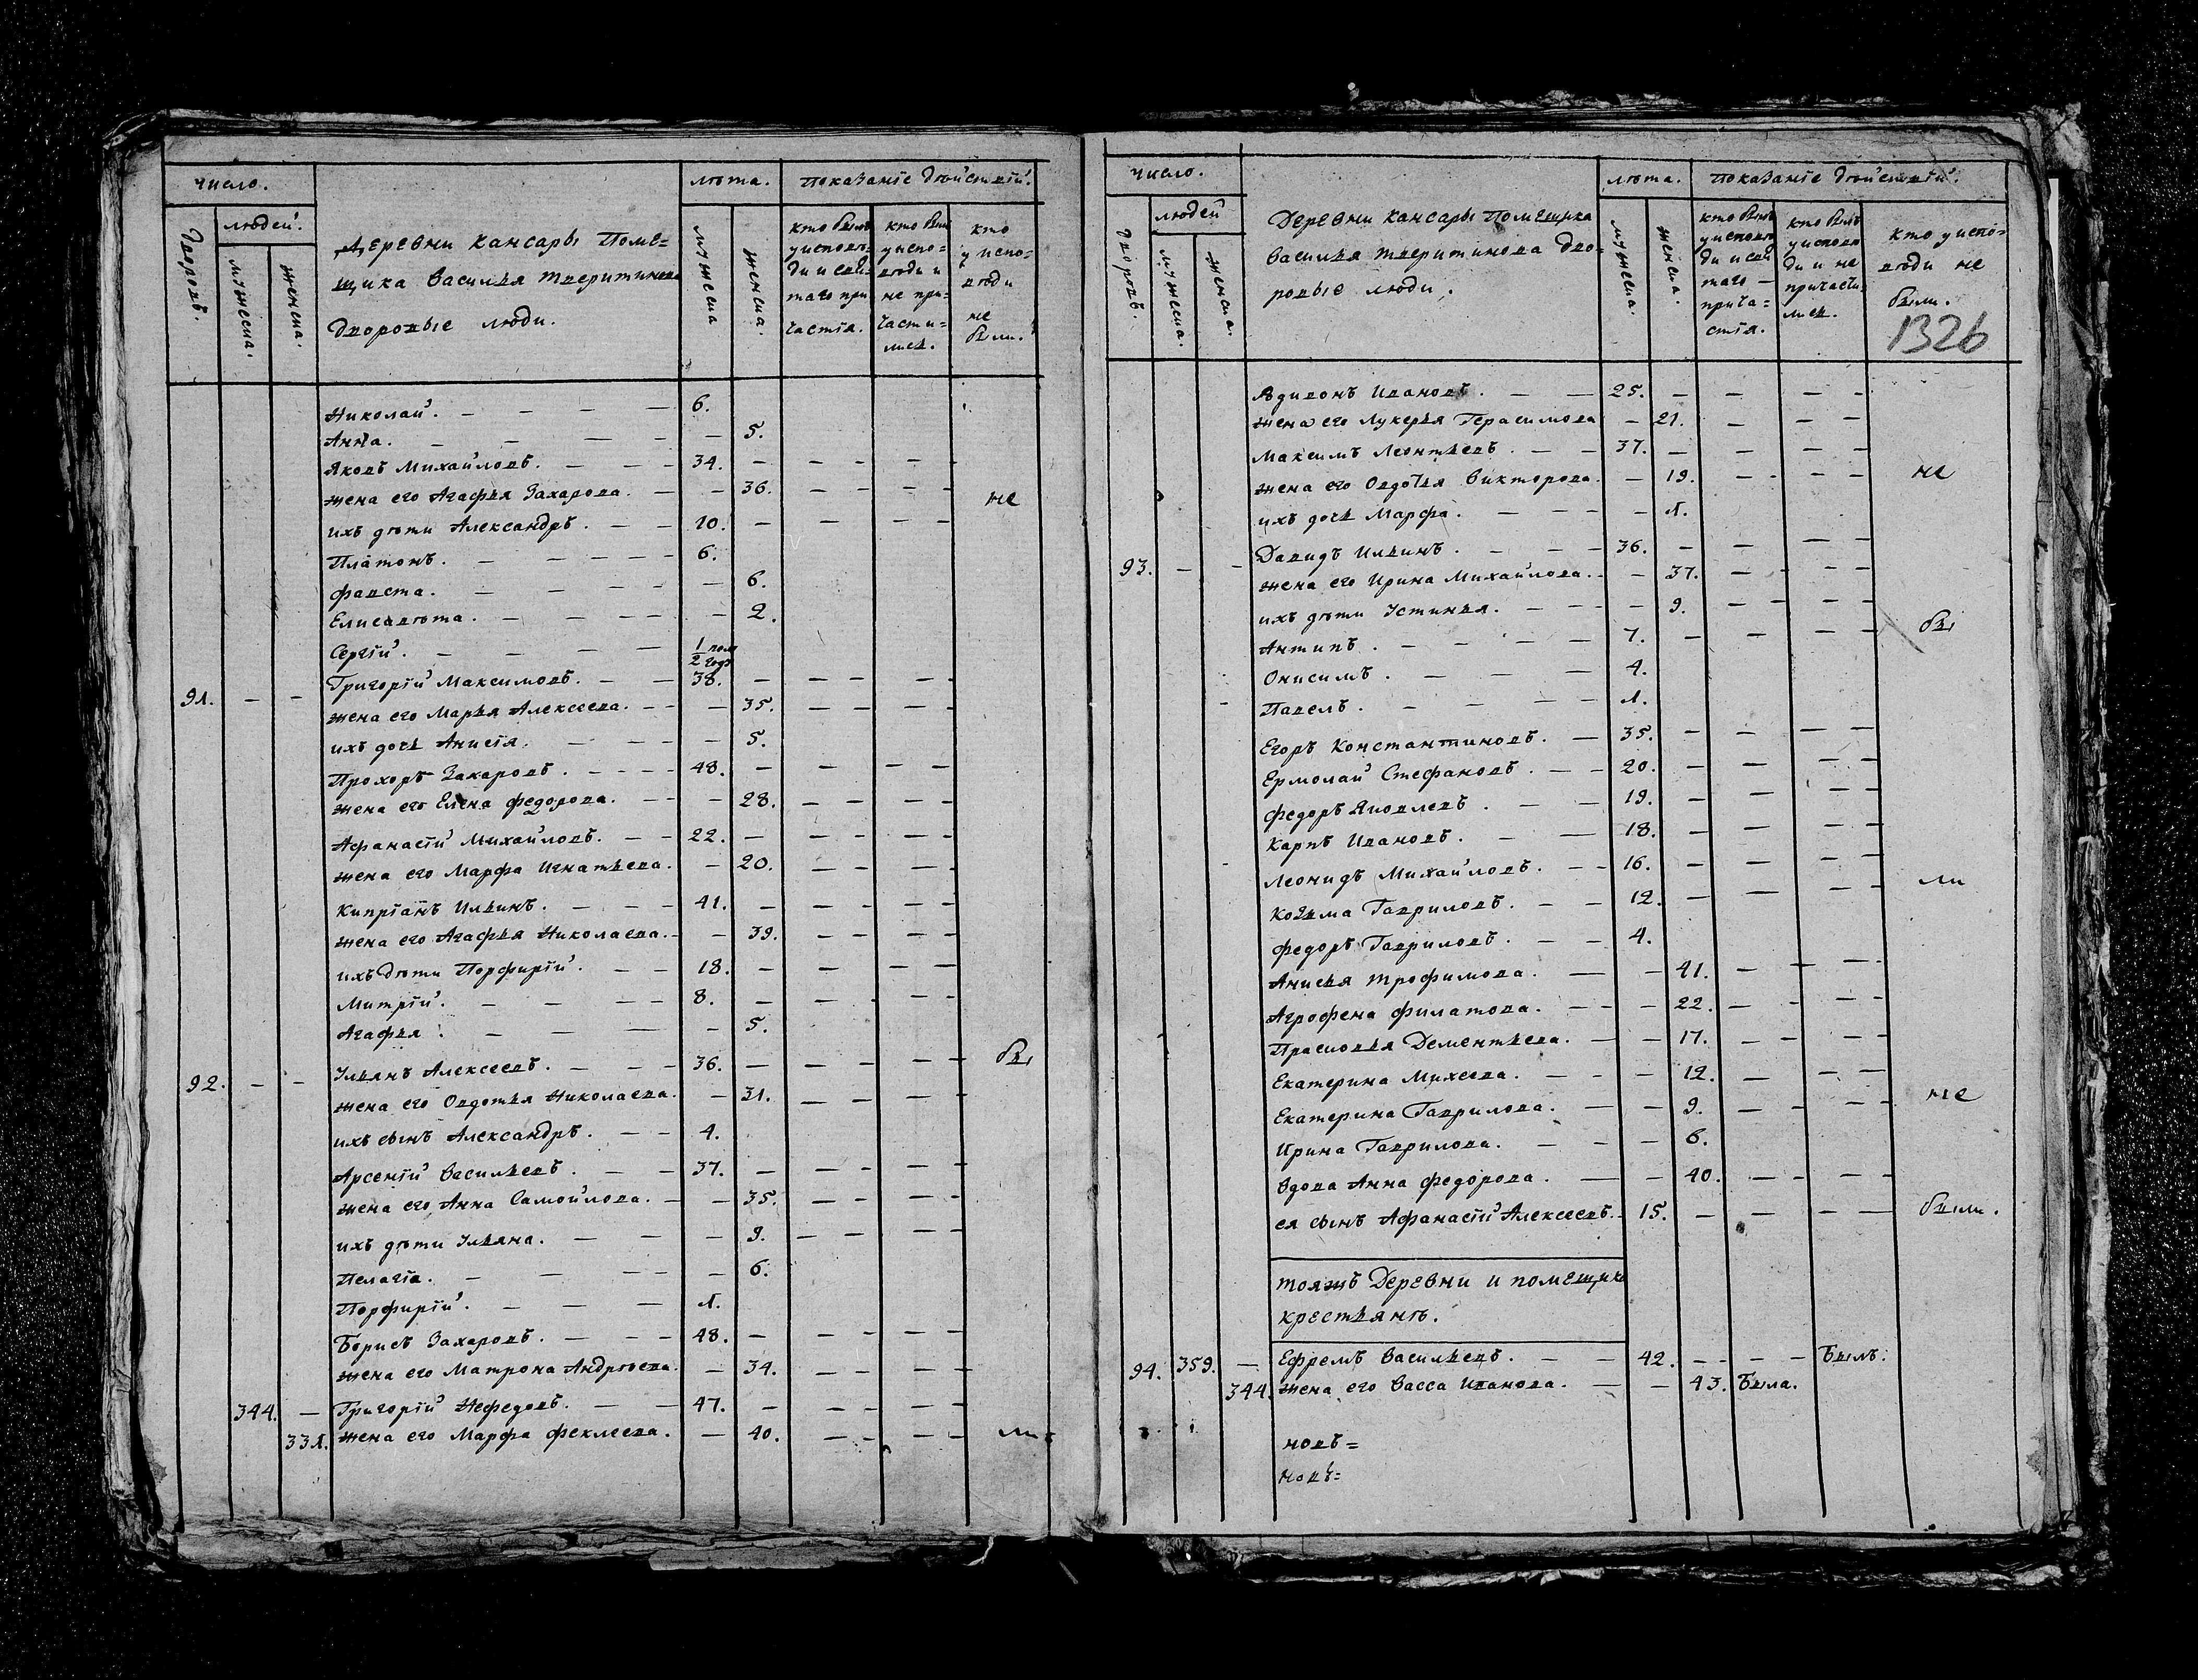 число.
лѣта.
показанїе дѣйствїй.
людей.
дворовъ.
мужеска.
женска.
Деревни Кансары Поме=
щика Василья Тверитинова
дворовые люди.
мужеска
женска.
кто былъ
у исповѣ=
ди и свя=
таго при
частїя.
кто был
у испо=
вѣди и
не при=
части=
лися.
кто
у испо=
вѣди
не
были.
Николай. 6.
Анна. 5.
Яковъ Михайловъ. 34.
жена его Агафья Захарова. 36. не
ихъ дѣти Александръ. 10.
Платонъ. 6.
Фавста. 6.
Елисавѣта. 2.
Сергїй. 1/2 пол года
91. Григорїй Максимовъ. 38.
жена его Марья Алексеева. 35.
ихъ дочь Анисїя. 5.
Прохоръ Захаровъ. 48.
жена его Елена Федорова. 28.
Афанасїй Михайловъ. 22.
жена его Марфа Игнатьева. 20.
Кипрїанъ Ильинъ. 41.
жена его Агафья Николаева. 39.
ихъ дѣти Порфирїй. 18.
Митрїй. 8.
Агафья. 5.
92. Ульянъ Алексеевъ. 36. бы
жена его Овдотья Николаева. 31.
ихъ сынъ Александръ. 4.
Арсенїй Васильевъ. 37.
жена его Анна Самойлова. 35.
ихъ дѣти Ульяна. 9.
Пелагїа. 6.
Порфирїй. 1.
Борисъ Захаровъ. 48.
жена его Матрона Андрѣева. 34.
344. Григорїй Нефедовъ. 47.
331. жена его Марфа Феклеева. 40. ли
число.
лѣта.
показанїе дѣйствїй.
людей
дворовъ.
мужеска.
женска.
Деревни Кансары Помещика
Василья Тверитинова дво=
ровые люди.
мужеска.
женска.
кто былъ
у исповѣ
ди и свя
таго
прича=
стїя.
кто былъ
у исповѣ
ди и не
причасти
лися.
кто у испо=
вѣди не
были.
1326
Ядивонъ Ивановъ. 25.
жена его Лукерья Герасимова 21.
Максимъ Леонтьевъ. 37.
жена его Овдотья Викторова. 19. не
ихъ дочь Марфа. 1.
93. Давидъ Ильинъ. 36.
жена его Ирина Михайлова. 37.
ихъ дѣти Устинья. 9.
Антипъ. 7. бы
Онисимъ. 4.
Павелъ. 1.
Егоръ Константиновъ. 35.
Ермолай Стефановъ. 20.
Федоръ Яковлевъ. 19.
Карпъ Ивановъ. 18.
Леонидъ Михайловъ. 16.
Козьма Гавриловъ. 12. ли
Федоръ Гавриловъ. 4.
Анисья Трофимова. 41.
Агрофена Филатова. 22.
Прасковья Дементьева. 17.
Екатерина Михеева. 12.
Екатерина Гаврилова. 9. не
Ирина Гаврилова. 6.
Вдова Анна Федорова. 40.
ея сынъ Афанасїй Алексеевъ. 15. были.
тояжъ Деревни и помещика
крестьянѣ.
94. 359. Ефремъ Васильевъ. 42. Былъ.
344. жена его Васса Иванова. 43. Была.
новъ=
новъ=